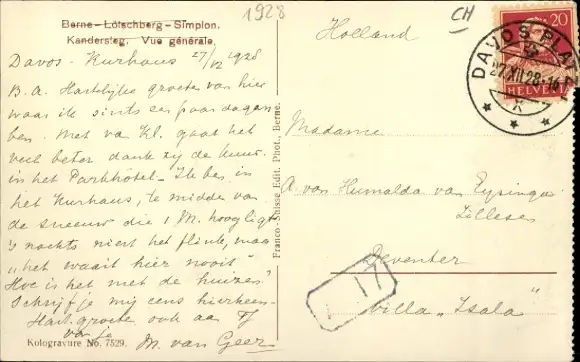 1928
CH
Berne-Lötschberg-Simplon.
Kandersteg. Vue générale.
Davos - Kurhaus 27/12 1928
B.A. Hartelijke groeten van hier
waar ik sints een paar dagen
ben. Met va Kl. gaat het
veel beter dank zij de kuur
in het Parkhôtel - Ik ben in
het Kurhaus, te midden van
de sneeuw die 1 M. hoog ligt
's nachts het flink, maar
"het waait hier nooit"
Hoe is het met de huizen?
Schrijf je mij eens hierheen
Hart. groete ook aan
van je
M. van Geer
Kologravure No. 7529.
Franco-Suisse Edit. Phot., Berne.
Holland
20
HELVETIA
DAVOS PLATZ
27.XII.28.-16
K
Madame
A. van Humalda van Eysinga
Lilleses
Deventer
Villa "Isala"
17